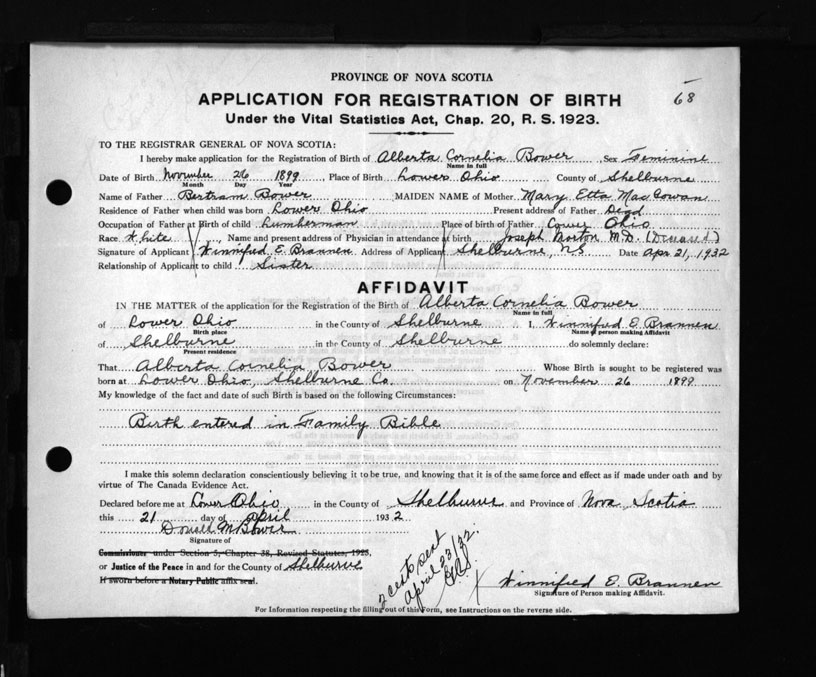 PROVINCE OF NOVA SCOTIA
APPLICATION FOR REGISTRATION OF BIRTH
68
Under the Vital Statistics Act, Chap. 20, R. S. 1923.
TO THE REGISTRAR GENERAL OF NOVA SCOTIA:
I hereby make application for the Registration of Birth of Alberta Cornelia Bower Sex Feminine
Name in full
Date of Birth November 26 1899 Place of Birth Lower Ohio County of Shelburne
Month Day Year
Name of Father Bertram Bower MAIDEN NAME of Mother Mary Etta MacCowan
Residence of Father when child was born Lower Ohio Present address of Father Dead
Occupation of Father at Birth of child Lumberman Place of birth of Father Lower Ohio
Race White Name and present address of Physician in attendance at birth Joseph Norton M.D. (Deceased)
Signature of Applicant Winnifred E. Brannen Address of Applicant Shelburne, NS Date Apr 21, 1932
Relationship of Applicant to child Sister
AFFIDAVIT
IN THE MATTER of the application for the Registration of the Birth of Alberta Cornelia Bower
Name in full
of Lower Ohio in the County of Shelburne I, Winnifred E. Brannen
Birth place Name of person making Affidavit
of Shelburne in the County of Shelburne do solemnly declare:
Present residence
That Alberta Cornelia Bower Whose Birth is sought to be registered was
born at Lower Ohio, Shelburne Co. on November 26 1899
My knowledge of the fact and date of such Birth is based on the following Circumstances:
Birth entered in Family Bible
I make this solemn declaration conscientiously believing it to be true, and knowing that it is of the same force and effect as if made under oath and by
virtue of The Canada Evidence Act.
Declared before me at Lower Ohio in the County of Shelburne and Province of Nova Scotia
this 21 day of April 1932
Donald M Bower
Signature of
Commissioner under Section 5, Chapter 38, Revised Statutes, 1923,
or Justice of the Peace in and for the County of Shelburne
If sworn before a Notary Public affix seal.
2 certs sent
April 23/32.
X Winnifred E. Brannen
Signature of Person making Affidavit.
For Information respecting the filling out of this Form, see Instructions on the reverse side.